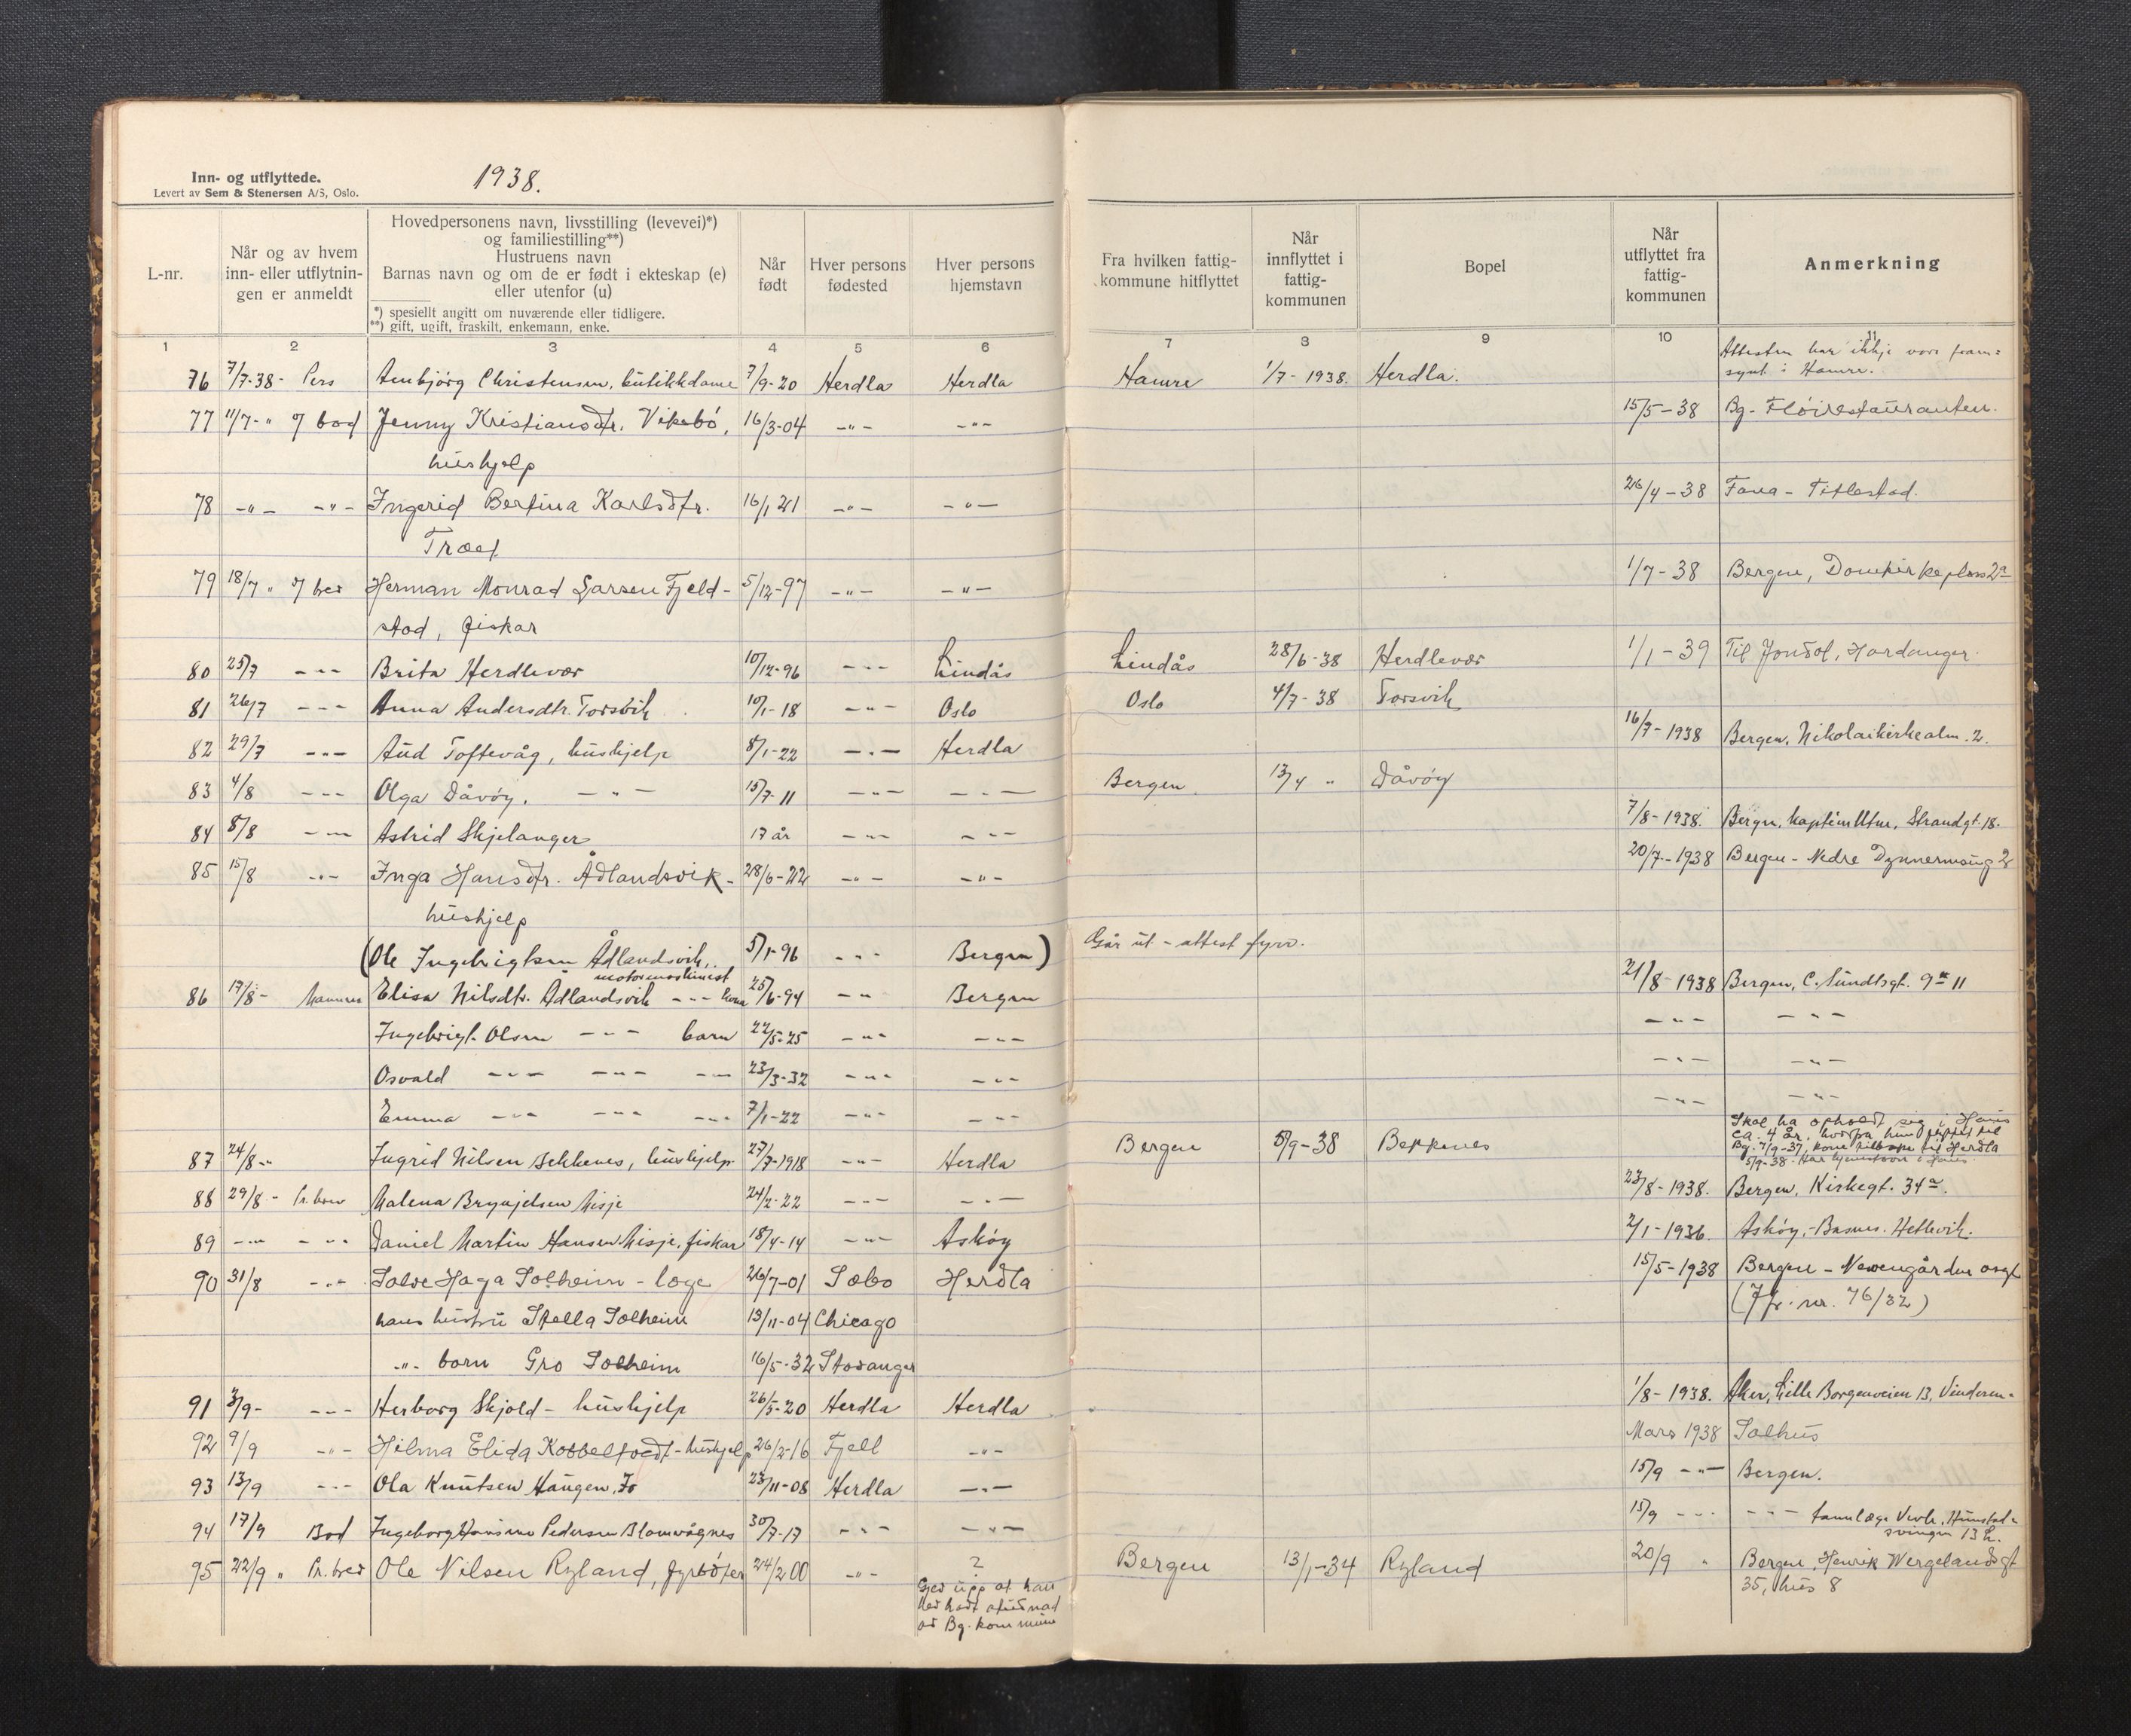 Inn- og utflyttede.
Levert av Sem & Stenersen A/S, Oslo.
1938.
L-nr.
Når og av hvem
inn- eller utflytnin-
gen er anmeldt
Hovedpersonens navn, livsstilling (levevei)*)
og familiestilling**)
Hustruens navn
Barnas navn og om de er født i ekteskap (e)
eller utenfor (u)
*) spesiellt angitt om nuværende eller tidligere.
**) gift, ugift, fraskilt, enkemann, enke.
Når
født
Hver persons
fødested
Hver persons
hjemstavn
Fra hvilken fattig-
kommune hitflyttet
Når
innflyttet i
fattig-
kommunen
Bopel
Når
utflyttet fra
fattig-
kommunen
Anmerkning
1 2 3 4 5 6 7 8 9 10 11
76 7/7-38- Pers Arnbjörg Christensen, butikkdame 7/9-20 Herdla Herdla Hamre 1/7-1938. Herdla. Attesten har ikkje vore fram=
synt i Hamre.
77 11/7-" Bod Jenny Kristiansdtr. Vikebö, 16/3-04 -"- -"- 15/5-38 Bg- Flöirestauranten.
hushjelp
78 -"- -"- Ingerid Bertina Karlsdtr. 16/1 21 -"- -"- 26/4-38 Fana - Titlestad.
Træet
79 18/7 " brev Herman Monrad Larsen Fjeld- 5/12-97 -"- -"- 1/7-38 Bergen, Domkirkeplass 2a
stad, fiskar
80 25/7 -"- Brita Herdlevær 10/12-96 -"- Lindås Lindås 28/6-38 Herdlevær 1/1-39 Til Jondal, Hardanger.
81 26/7 -"- Anna Andersdtr. Torsvik 10/1-18 -"- Oslo Oslo 4/7-38 Torsvik
82 29/7 -"- Aud Toftevåg, hushjelp 8/1-22 -"- Herdla 16/7-1938 Bergen, Nikolaikirkealm. 2.
83 4/8 -"- Olga Dåvöy. -"- 15/7-11 -"- -"- Bergen 13/4 " Dåvöy
84 8/8 -"- Astrid Skjelanger 17 år -"- -"- 7/8-1938. Bergen, Strandgt. 18.
85 15/8 -"- Inga Hansdtr. Ådlandsvik- 28/6-22 -"- -"- 20/7-1938 Bergen - Nedre 2
hushjelp
(Ole Ingebrigtsen Ådlandsvik, 5/1-96 -"- Bergen) Går ut - attest fyrr.
motormaskinist
86 17/8- Mannen Elisa Nilsdtr. Ådlandsvik -"- kona 25/6-94 -"- Bergen 21/8-1938 Bergen, C. Sundtsgt. 9 11
Ingebrigt Olsen -"- barn 22/5-25 -"- -"- -"- -"-
Osvald -"- -"- -"- 23/3-32 -"- -"- -"- -"-
Emma -"- -"- -"- 7/1-22 -"- -"- -"- -"-
87 24/8-" Ingrid Nilsen Bekkenes, hushjelp 27/7-1918 -"- Herdla Bergen 5/9-38 Bekkenes Skal ha opholdt sig i Haus
ca. 4 år, hvorfra hun flyttet til
Bg. 7/9-37, kom til Herdla
5/9-38. Har hjemstavn i Haus.
88 29/8- Pr. brev Malena Brynjelsen Misje 24/2-22 -"- -"- 23/8-1938. Bergen, Kirkegt. 34a.
89 -"- -"- Daniel Martin Hansen Misje, fiskar 18/4-14 -"- Asköy 2/1-1936. Asköy, Hetlevik.
90 31/8 -"- Salve Haga Solheim - læge 26/7-01 Sæbo Herdla 15/5-1938 Bergen - Nevengården
(Jfr. nr. 76/32)
hans hustru Stella Solheim 13/11-04 Chicago
-"- born Gro Solheim 16/5-32 Stavanger
91 3/9- -"- Herborg Skjold - hushjelp 26/5-20 Herdla Herdla 1/8-1938. Aker, Lille Borgenveien 13, Vinderen-
92 9/9 -"- Hilma Elida Kobbeltvedt - hushjelp 26/2-16 Fjell -"- Mars 1938 Salhus
93 13/9 -"- Ola Knutsen Haugen, 23/11-08 Herdla -"- 15/9 -"- Bergen.
94 17/9 Bod Ingeborg Pedersen Blomvågnes 30/7-17 -"- -"- 15/9 -"- -"- tannlæge
svingen 13
95 22/9 " Pr. brev Ole Nilsen Ryland, fyrböter 24/2 00 -"- ? Bergen 13/1-34 Ryland 20/9 " Bergen, Henrik Wergelandsgt
35, hus 8
Gev upp at han
hev hatt studnad
av Bg. kommune